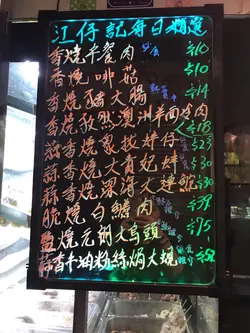 江仔記每日精選
香燒午餐肉 $10
香燒啡菇 $10
香燒豬大腸 $14
香燒孜然澳洲羊西冷肉 $18
蒜香燒忍找蟶仔 $23
蒜香燒大貴妃蚌 $30
蒜香燒深海大連鮑 $30
脆燒白鱔肉 $38
鹽燒元朗大烏頭 $75
蒜香牛油粉絲焗大蜆